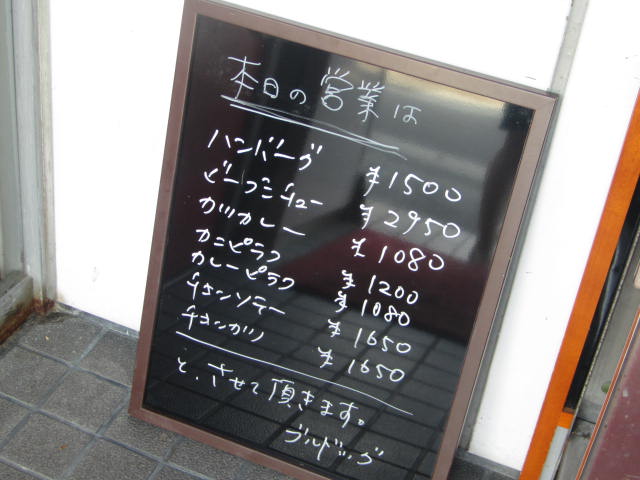 本日の営業は
ハンバーグ ¥1500
ビーフシチュー ¥2950
カツカレー ¥1080
カニピラフ ¥1200
カレーピラフ ¥1080
チキンソテー ¥1650
チキンカツ ¥1650
と、させて頂きます。
ブルドッグ